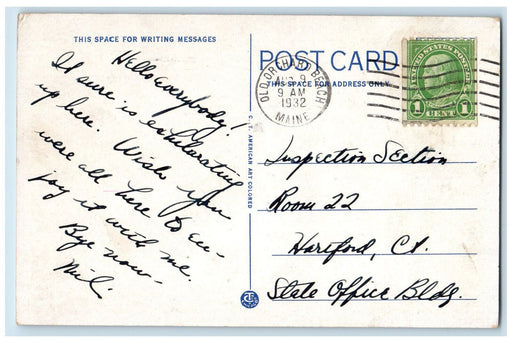 THIS SPACE FOR WRITING MESSAGES
Hello Everybody!
It sure is exhilarating
up here. Wish you
were all here to en-
joy it with me.
Bye now-
Mil.
C.T. AMERICAN ART COLORED
POST CARD
THIS SPACE FOR ADDRESS ONLY
OLD ORCHARD BEACH
AUG 9
9 AM
1932
MAINE
UNITED STATES POSTAGE
1 CENT 1
Inspection Section
Room 22
Hartford, Ct.
State Office Bldg.